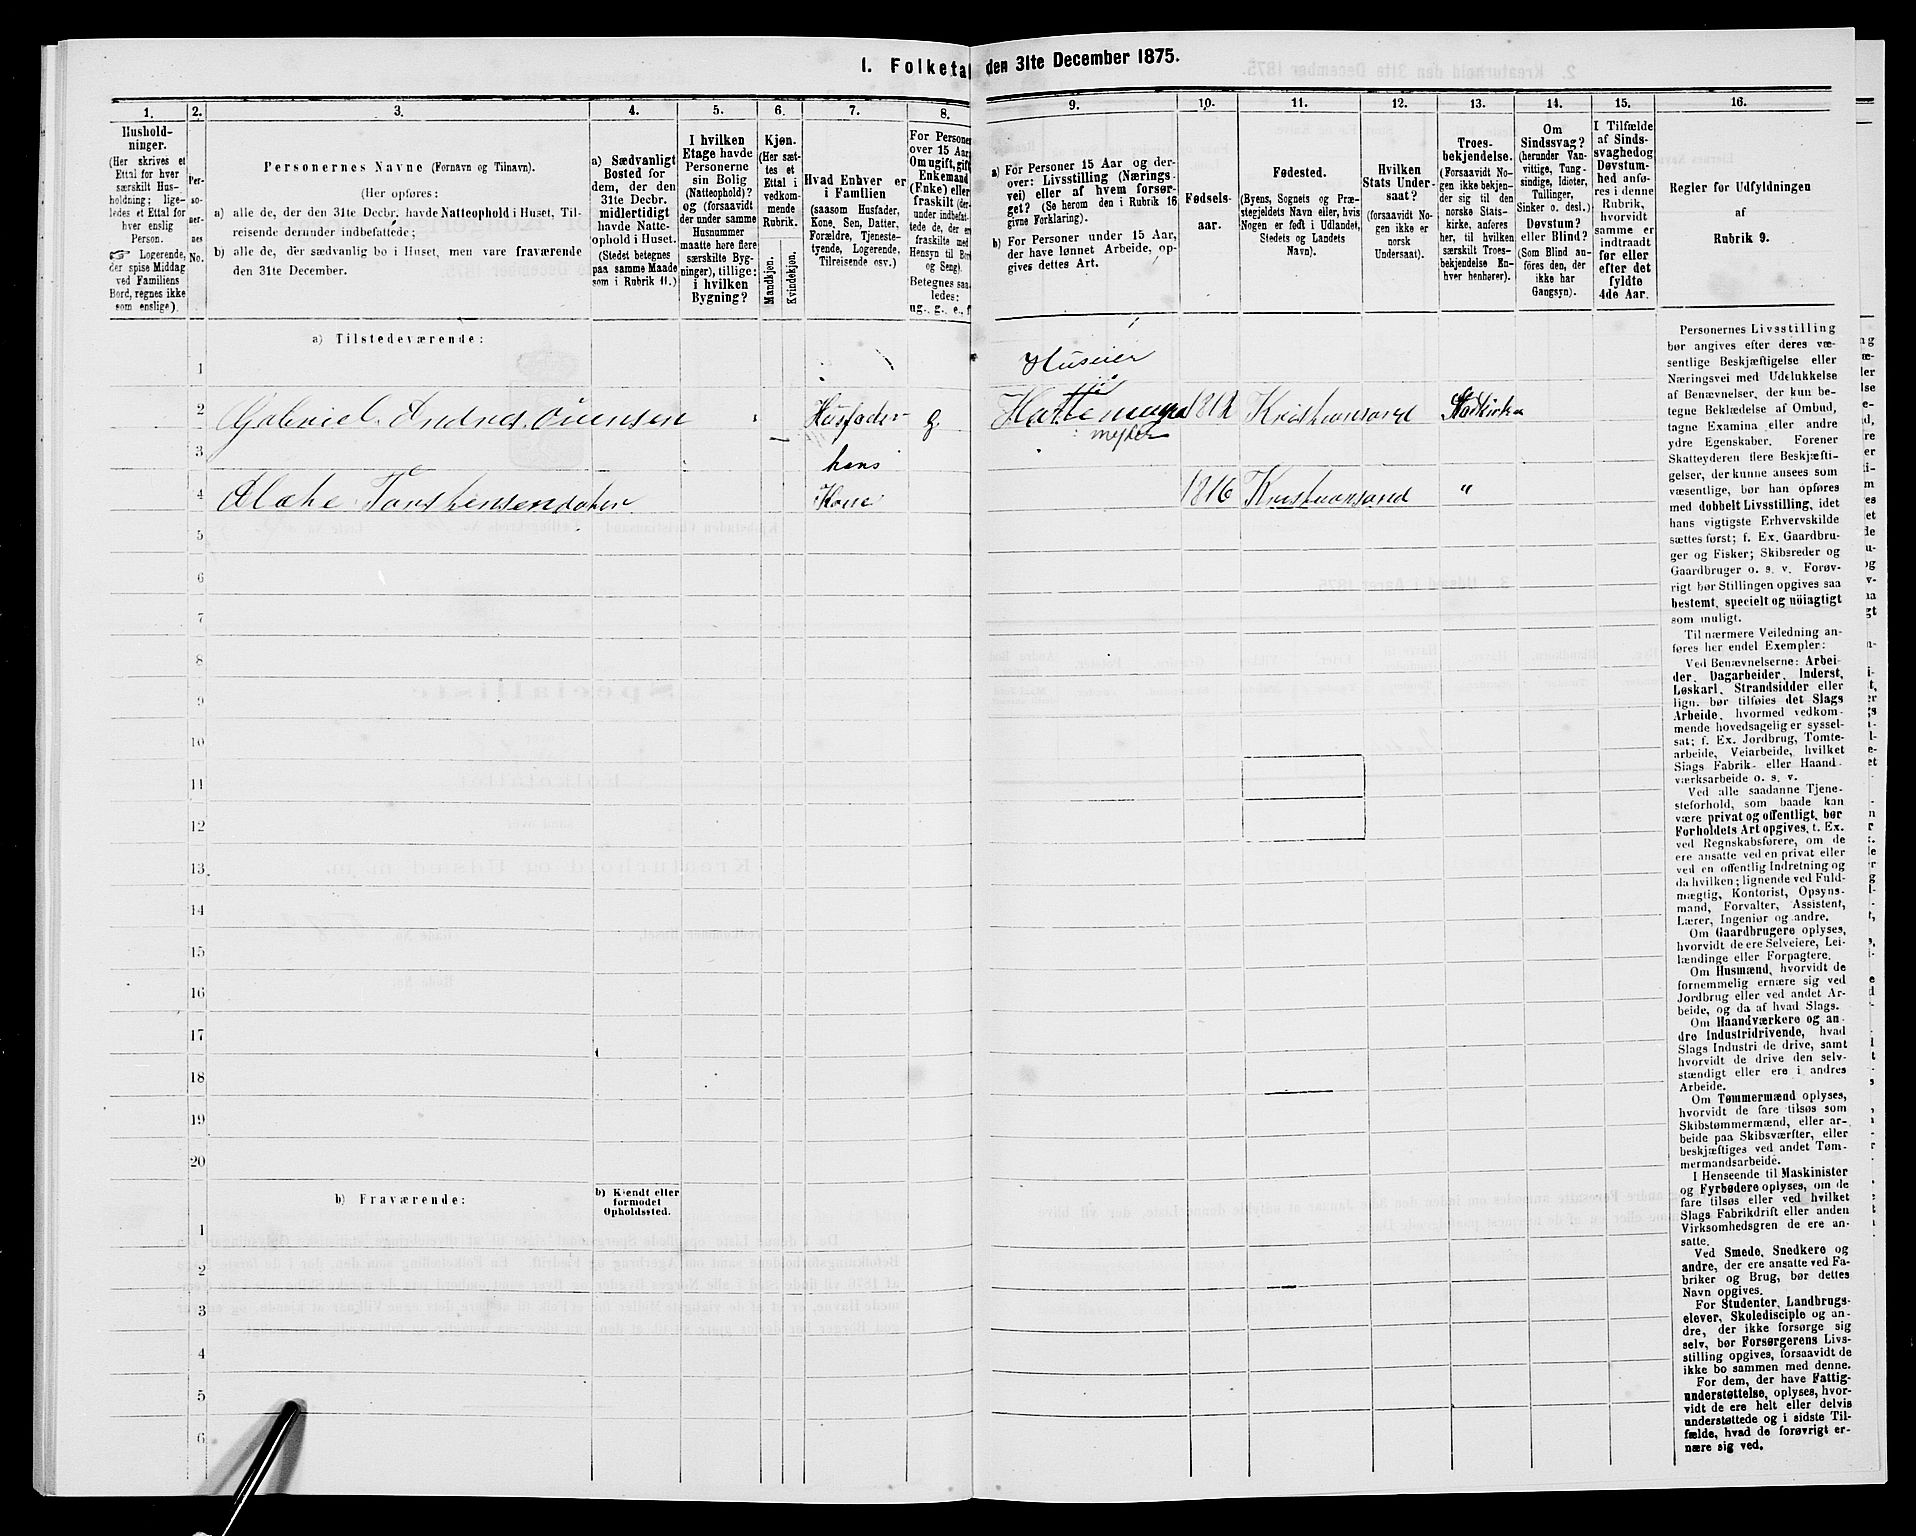 1. Folketal den 31te December 1875.
1.
Hushold-
ninger.
(Her skrives et
Ettal for hver
særskilt Hus-
holdning; lige-
ledes et Ettal for
hver enslig
Person.
Logerende,
der spise Middag
ved Familiens
Bord, regnes ikke
som enslige).
2.
Per-
so-
ner-
nes
No.
3.
Personernes Navne (Fornavn og Tilnavn).
(Her opføres:
a) alle de, der den 31te Decbr. havde Natteophold i Huset, Til-
reisende derunder indbefattede;
b) alle de, der sædvanlig bo i Huset, men vare fraværende
den 31te December.
4.
a) Sædvanligt
Bosted for
dem, der den
31te Decbr.
midlertidigt
havde Natte-
ophold i Huset.
(Stedet betegnes
paa samme Maade
som i Rubrik 11.)
5.
I hvilken
Etage havde
Personerne
sin Bolig
(Natteophold)?
og (forsaavidt
der under samme
Husnummer
maatte høre flere
særskilte Byg-
ninger), tillige:
i hvilken
Bygning?
6.
Kjøn.
(Her sæt-
tes et
Ettal i
vedkom-
mende
Rubrik.
Mandkjøn.
Kvindekjøn.
7.
Hvad Enhver er
i Familien
(saasom Husfader,
Kone, Søn, Datter,
Forældre, Tjeneste-
tyende, Logerende,
Tilreisende osv.)
8.
For Personer
over 15 Aar,
Om ugift, gift,
Enkemand
(Enke) eller
fraskilt (der-
under indbefat-
tede de, der er
fraskilte med
Hensyn til Bord
og Seng).
Betegnes saa-
ledes:
ug., g., e., f.
9.
a) For Personer 15 Aar og der-
over: Livsstilling (Nærings-
vei) eller af hvem forsør-
get? (Se herom den i Rubrik 16
givne Forklaring).
b) For Personer under 15 Aar,
der have lønnet Arbeide, op-
gives dettes Art.
10.
Fødsels-
aar.
11.
Fødested.
(Byens, Sognets og Præ-
stegjeldets Navn eller, hvis
Nogen er født i Udlandet,
Stedets og Landets
Navn).
12.
Hvilken
Stats Under-
saat?
(forsaavidt No-
gen ikke er
norsk
Undersaat).
13.
Troes-
bekjendelse.
(Forsaavidt No-
gen ikke bekjen-
der sig til den
norske Stats-
kirke, anføres
her, til hvilken
særskilt Troes-
bekjendelse En-
hver henhører).
14.
Om
Sindssvag?
(herunder Van-
vittige, Tung-
sindige, Idioter,
Tullinger,
Sinker o. desl.)
Døvstum?
eller Blind?
(Som Blind an-
føres den, der
ikke har
Gangsyn).
15.
I Tilfælde
af Sinds-
svaghed og
Døvstum-
hed anfø-
res i denne
Rubrik,
hvorvidt
samme er
indtraadt
før eller
efter det
fyldte
4de Aar.
16.
Regler for Udfyldningen
af
Rubrik 9.
a) Tilstedeværende:
1
Huseier
2 Gabriel Andres Evensen Husfader g. Hattemager 1812 Kristiansand Statskirken
mester
3 hans
4 Torstensendatter Kone 1816 Kristiansand "
5
6
7
8
9
10
11
12
13
14
15
16
17
18
19
20
b) Fraværende:
b) Kjendt eller
formodet
Opholdssted.
1
2
3
4
5
6
Personernes Livsstilling
bør angives efter deres væ-
sentlige Beskjæftigelse eller
Næringsvei med Udelukkelse
af Benævnelser, der kun be-
tegne Beklædelse af Ombud,
tagne Examina eller andre
ydre Egenskaber. Forener
Skatteyderen flere Beskjæfti-
gelser, der kunne ansees som
væsentlige, bør han opføres
med dobbelt Livsstilling, idet
hans vigtigste Erhvervskilde
sættes først; f. Ex. Gaardbru-
ger og Fisker; Skibsreder og
Gaardbruger o. s. v. Forøv-
rigt bør Stillingen opgives saa
bestemt, specielt og nöiagtigt
som muligt.
Til nærmere Veiledning an-
føres her endel Exempler:
Ved Benævnelserne: Arbei-
der, Dagarbeider, Inderst,
Løskarl, Strandsidder eller
lign. bør tilføies det Slags
Arbeide, hvormed vedkom-
mende hovedsagelig er syssel-
sat; f. Ex. Jordbrug, Tomte-
arbeide, Veiarbeide, hvilket
Slags Fabrik- eller Haand-
værksarbeide o. s. v.
Ved alle saadanne Tjene-
steforhold, som baade kan
være privat og offentligt, bør
Forholdets Art opgives, t. Ex.
ved Regnskabsførere, om de
ere ansatte ved en privat eller
ved en offentlig Indretning og
da hvilken; lignende ved Fuld-
mægtig, Kontorist, Opsyns-
mand, Forvalter, Assistent,
Lærer, Ingeniør og andre.
Om Gaardbrugere oplyses,
hvorvidt de ere Selveiere, Lei-
lændinge eller Forpagtere.
Om Husmænd, hvorvidt de
fornemmelig ernære sig ved
Jordbrug eller ved andet Ar-
beide, og da af hvad Slags.
Om Haandværkere og an-
dre Industridrivende, hvad
Slags Industri de drive, samt
hvorvidt de drive den selv-
stændigt eller ere i andres
Arbeide.
Om Tømmermænd oplyses,
hvorvidt de fare tilsøs som
Skibstømmermænd, eller ar-
beide paa Skibsværfter, eller
beskjæftiges ved andet Tøm-
mermandsarbeide.
I Henseende til Maskinister
og Fyrbødere oplyses, om de
fare tilsøs eller ved hvilket
Slags Fabrikdrift eller anden
Virksomhedsgren de ere an-
satte.
Ved Smede, Snedkere og
andre, der ere ansatte ved Fa-
briker og Brug, bør dettes
Navn opgives.
For Studenter, Landbrugs-
elever, Skoledisciple og an-
dre, der ikke forsørge sig
selv, bør Forsørgerens Livs-
stilling opgives, forsaavidt de
ikke bo sammen med denne.
For dem, der have Fattig-
understøttelse, oplyses, hvor-
vidt de ere helt eller delvis
understøttede og i sidste Til-
fælde, hvad de forøvrigt er-
nære sig ved.